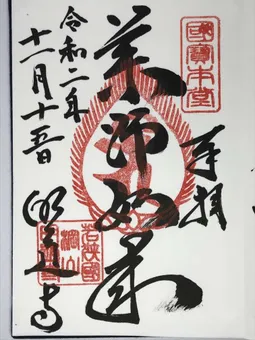 奉拝
國寶本堂
薬師如来
令和二年
十二月十五日
明通寺
若狭國
棡山